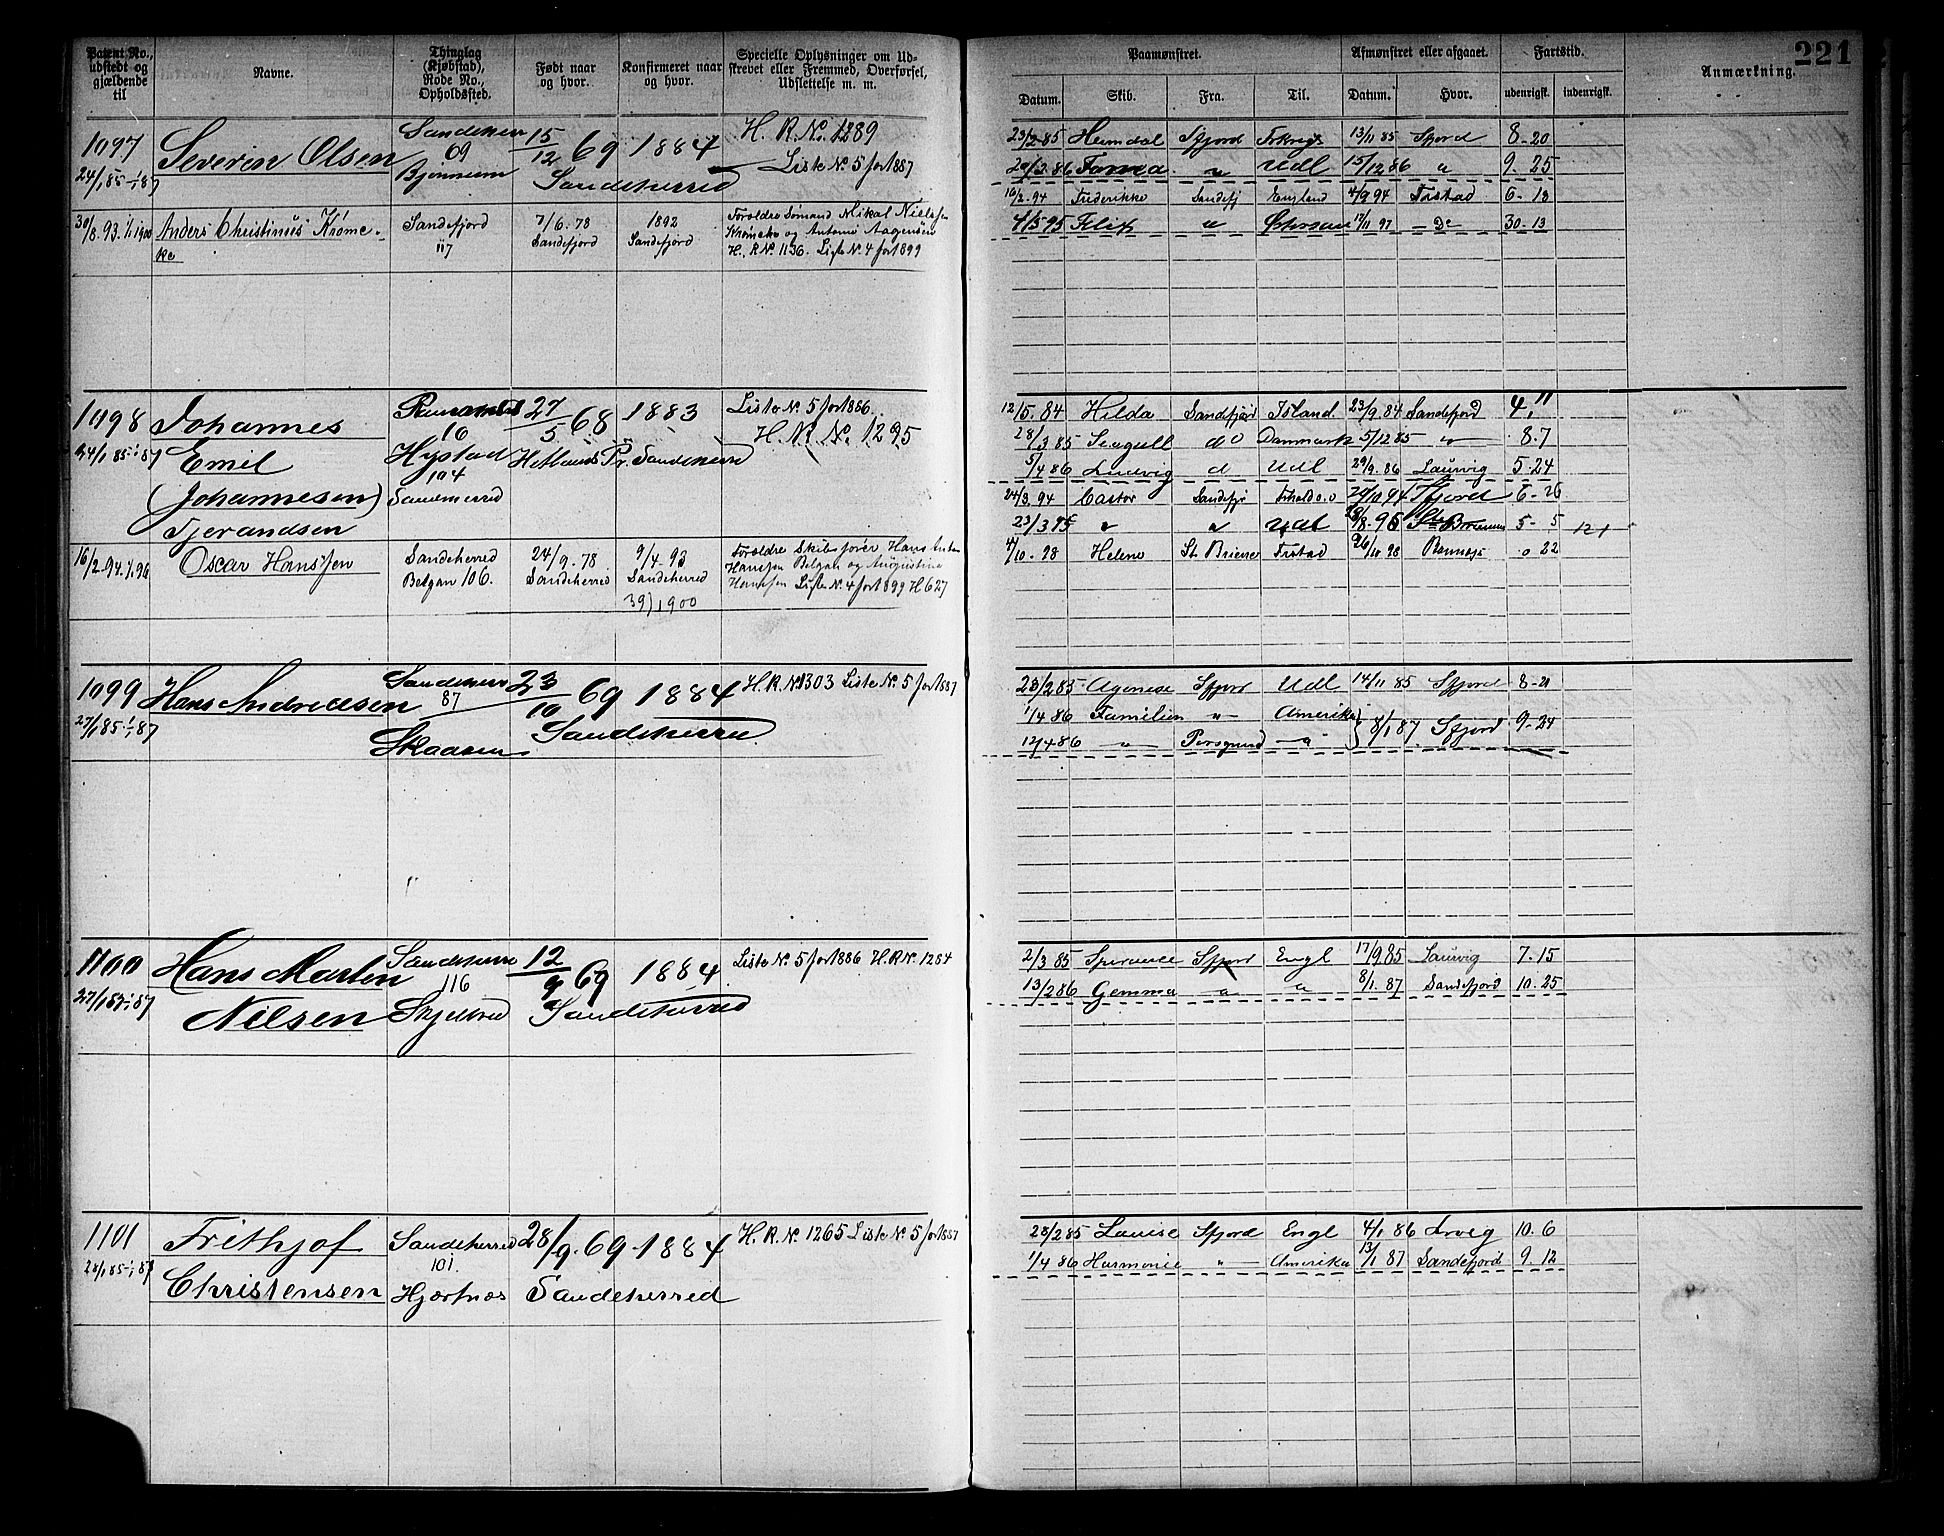 Patent No., udstedt og gjældende til
Navne.
Thinglag (Kjøbstad), Rode No., Opholdssted.
Født naar og hvor.
Konfirmeret naar og hvor.
Specielle Oplysninger om Udskrevet eller Fremmed, Overførsel, Udslettelse m. m.
Paamønstret.
Afmønstret eller afgaaet.
Fartstid.
Anmærkning.
221
Datum.
Skib.
Fra.
Til.
Datum.
Hvor.
udenrigsk.
indenrigsk.
1097 Severin Olsen Sandeherr 69 15/12 69 1884 H. R. No. 1289
24/1 85-1/1 87 Bjønnum Sandeherred Liste No. 5 for 1887
23/2 85 Heimdal Sfjord 13/11 85 Sfjord 8-20
Udl 15/12 86 " 9-25
16/2-94 Frederikke Sandefj England 4/9 94 Frstad 6-13
4/5 95 Felix " 17/11 97 Do 30-13
30/8.93 1/1 1900 Anders Christinus Krøme- Sandefjord 7/6.78 1892 Forældre Sømand Mikal Nielsen
ke 117 Sandefjord Sandefjord Krømeke og Antomi Aagensen
H. R No. 1136. Liste No. 4 for 1899
1098 Johannes 10 27/5 68 1883 Liste No. 5 for 1886.
24/1 85-1/1 87 Emil Hystad Hetlands Pr. Sandeherre H. R. No. 1295
(Johannesen) 104
Tjerandsen
12/5. 84 Hilda Sandefjord Island 23/9 84 Sandefjord 4. 11
28/3 85 Seagull do Danmark 5/12 85 " 8.7
5/4 86 Ludvig d Udl 29/9. 86 Laurvig 5-24
24/3. 94 Castor Sandefj 24/10 94 Sfjord 6-26
23/3 95 " " Udl 5-5 121
4/10. 98 Helene St. Briene Frstad 26/11 98 0 22
16/2-94. 1/1 96 Oscar Hanssen Sandeherred 24/9. 78 9/4-93 Forældre Skibsfører Hans Anton
Betgan 106. Sandeherred Sandeherred Hanssen Betgan og Augustine
Hanssen Liste No. 4 for 1899 H 627
39) 1900
1099 Hans Andreasen Sandeherr 87 23/10 69 1884 H. R. No 1303 Liste No. 5 for 1887
27/1 85-1/1 87 Skaaren Sandeherre
23/2 85 Agenese Sfjord Udl 14/11 85 Sfjord 8-21
1/4 86 Familien " Amerika 8/1 87 Sfjord 9-24
12/4 86 " Porsgrund "
1100 Hans Marten Sandeherre 116 12/9 69 1884 Liste No. 5 for 1886 H. R No. 1284
27/1 85-1/1 87 Nilsen Skjelbred Sandeherred
2/3 85 Sperance Sfjord Engl 17/9 85 Laurvig 7.15
13/2 86 Gemma " " 8/1. 87 Sandefjord 10.25
1101 Frithjof Sandeherred 28/9. 69 1884 H. R. No. 1265 Liste No. 5 for 1887
28/1 85-1/1 87 101.
Christensen Hjertnæs Sandeherred
28/2 85 Louise Sfjord Engl 4/1 86 Lrvig 10.6
1/4 86 Harmonie " Amerika 13/1 87 Sandefjord 9.12